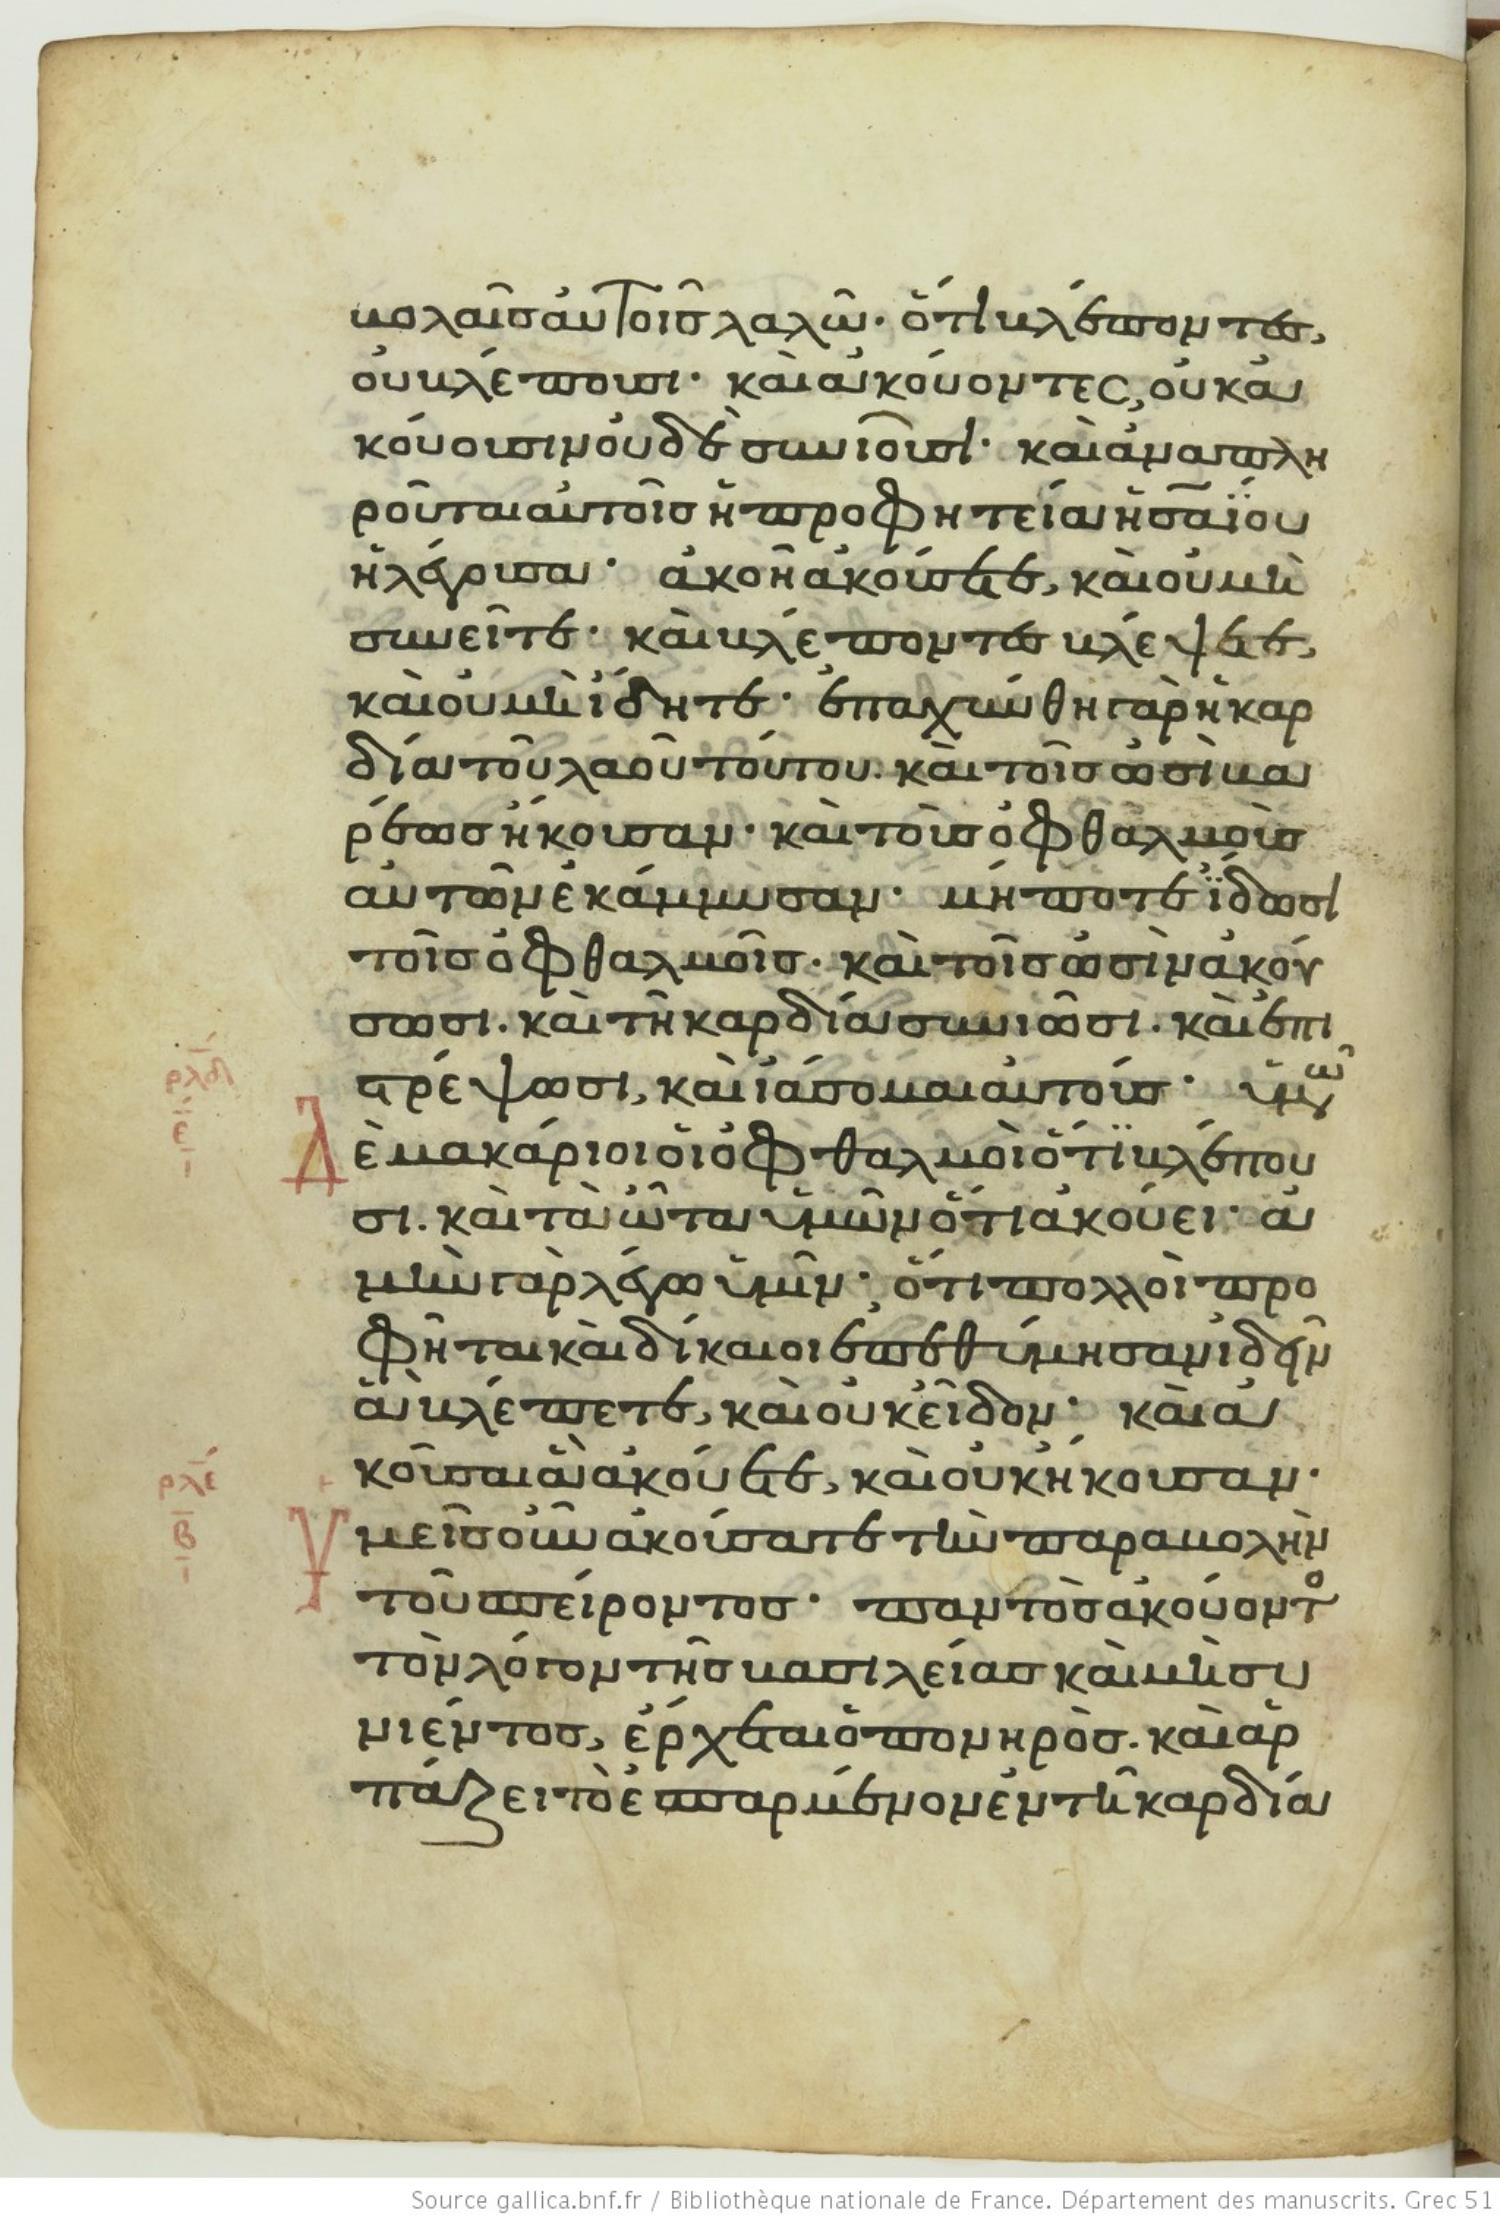 βολαῖς αὐτοῖς λαλῶ· ὅτι βλέποντες,
οὐ βλέπουσι· καὶ ἀκούοντες, οὐκ ἀ
κούουσιν οὐδὲ συνιοῦσι· καὶ ἀναπλη
ροῦται αὐτοῖς ἡ προφητεία ἡσαΐου
ἡ λέγουσα· ἀκοῆ ἀκούσετε, καὶ οὐ μὴ
συνεῖτε· καὶ βλέποντες βλέψετε,
καὶ οὐ μὴ ἴδητε· ἐπαχύνθη γὰρ ἡ καρ
δία τοῦ λαοῦ τούτου. καὶ τοῖς ὠσὶ βα
ρέως ἤκουσαν· καὶ τοὺς ὀφθαλμοὺς
αὐτῶν ἐκάμμυσαν· μήποτε ἴδωσι
τοῖς ὀφθαλμοῖς. καὶ τοῖς ὠσὶν ἀκού
σωσι. καὶ τῆ καρδία συνιῶσι. καὶ ἐπι
στρέψωσι, καὶ ἰάσομαι αὐτούς· ὑμῶν
ρλδ
ε
Δὲ μακάριοι οἱ ὀφθαλμοὶ ὅτι βλέπου
σι. καὶ τὰ ὦτα ὑμῶν ὅτι ἀκούει· ἀ
μὴν γὰρ λέγω ὑμῖν· ὅτι πολλοὶ προ
φῆται καὶ δίκαιοι ἐπεθύμησαν ἰδεῖν
ἃ βλέπετε, καὶ οὐκ εἶδον· καὶ ἀ
κοῦσαι ἃ ἀκούετε, καὶ οὐκ ἤκουσαν·
ρλε
β
Ὑμεῖς οὖν ἀκούσατε τὴν παραβολὴν
τοῦ σπείροντος· παντὸς ἀκούοντο
τὸν λόγον τῆς βασιλείας καὶ μὴ συ
νιέντος, ἔρχεται ὁ πονηρὸς. καὶ ἁρ
πάζει τὸ ἐσπαρμένον ἐν τῆ καρδία
Source gallica.bnf.fr / Bibliothèque nationale de France. Département des manuscrits. Grec 51